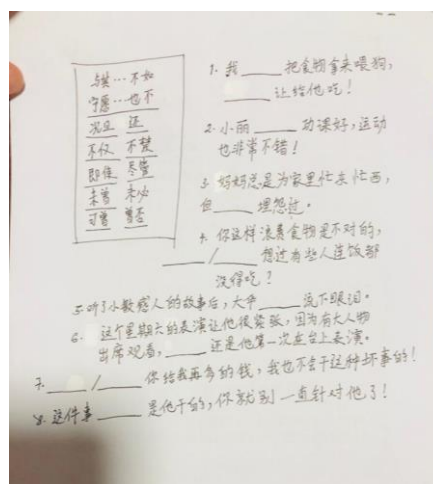 与其…不如
宁愿…也不
况且 还
不仅 不禁
即使 尽管
未曾 未必
可曾 曾否
1. 我____把食物拿来喂狗，
____让给他吃！
2. 小丽____功课好，运动
也非常不错！
3. 妈妈总是为家里忙东忙西，
但____埋怨过。
4. 你这样浪费食物是不对的，
____/____想过有些人连饭都
没得吃？
5. 听了小敏感人的故事后，大伞____流下眼泪。
6. 这个星期六的表演让他很紧张，因为有大人物
出席观看，____还是他第一次在台上表演。
7. ____/____你给我再多的钱，我也不会干这种坏事的！
8. 这件事____是他干的，你就别一直针对他了！